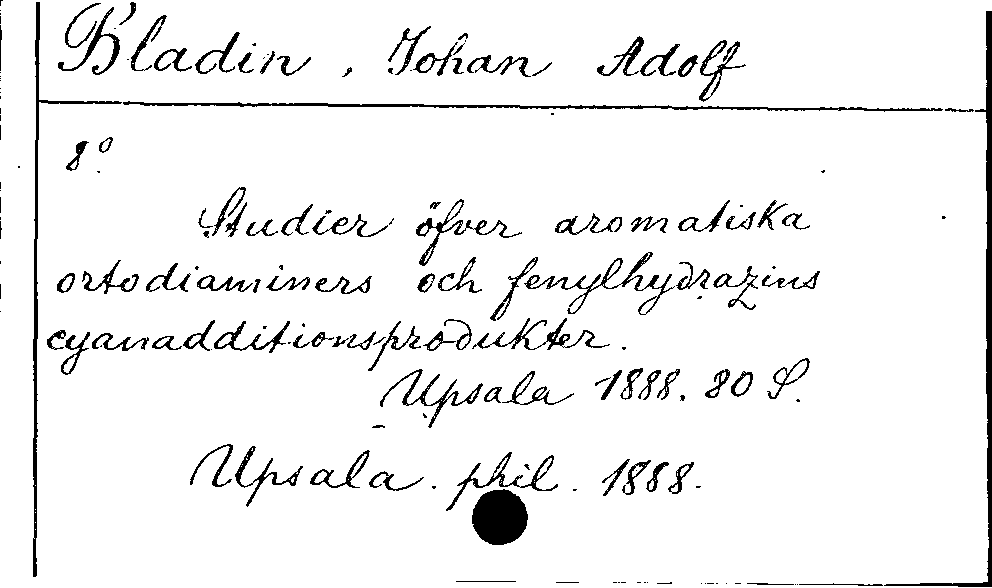 Bladin, Johan Adolf
8°.
Studier öfver aromatiska
ortodiaminers och fenylhydrazins
cyanadditionsprodukter.
Upsala 1888. 80 S.
Upsala. phil. 1888.